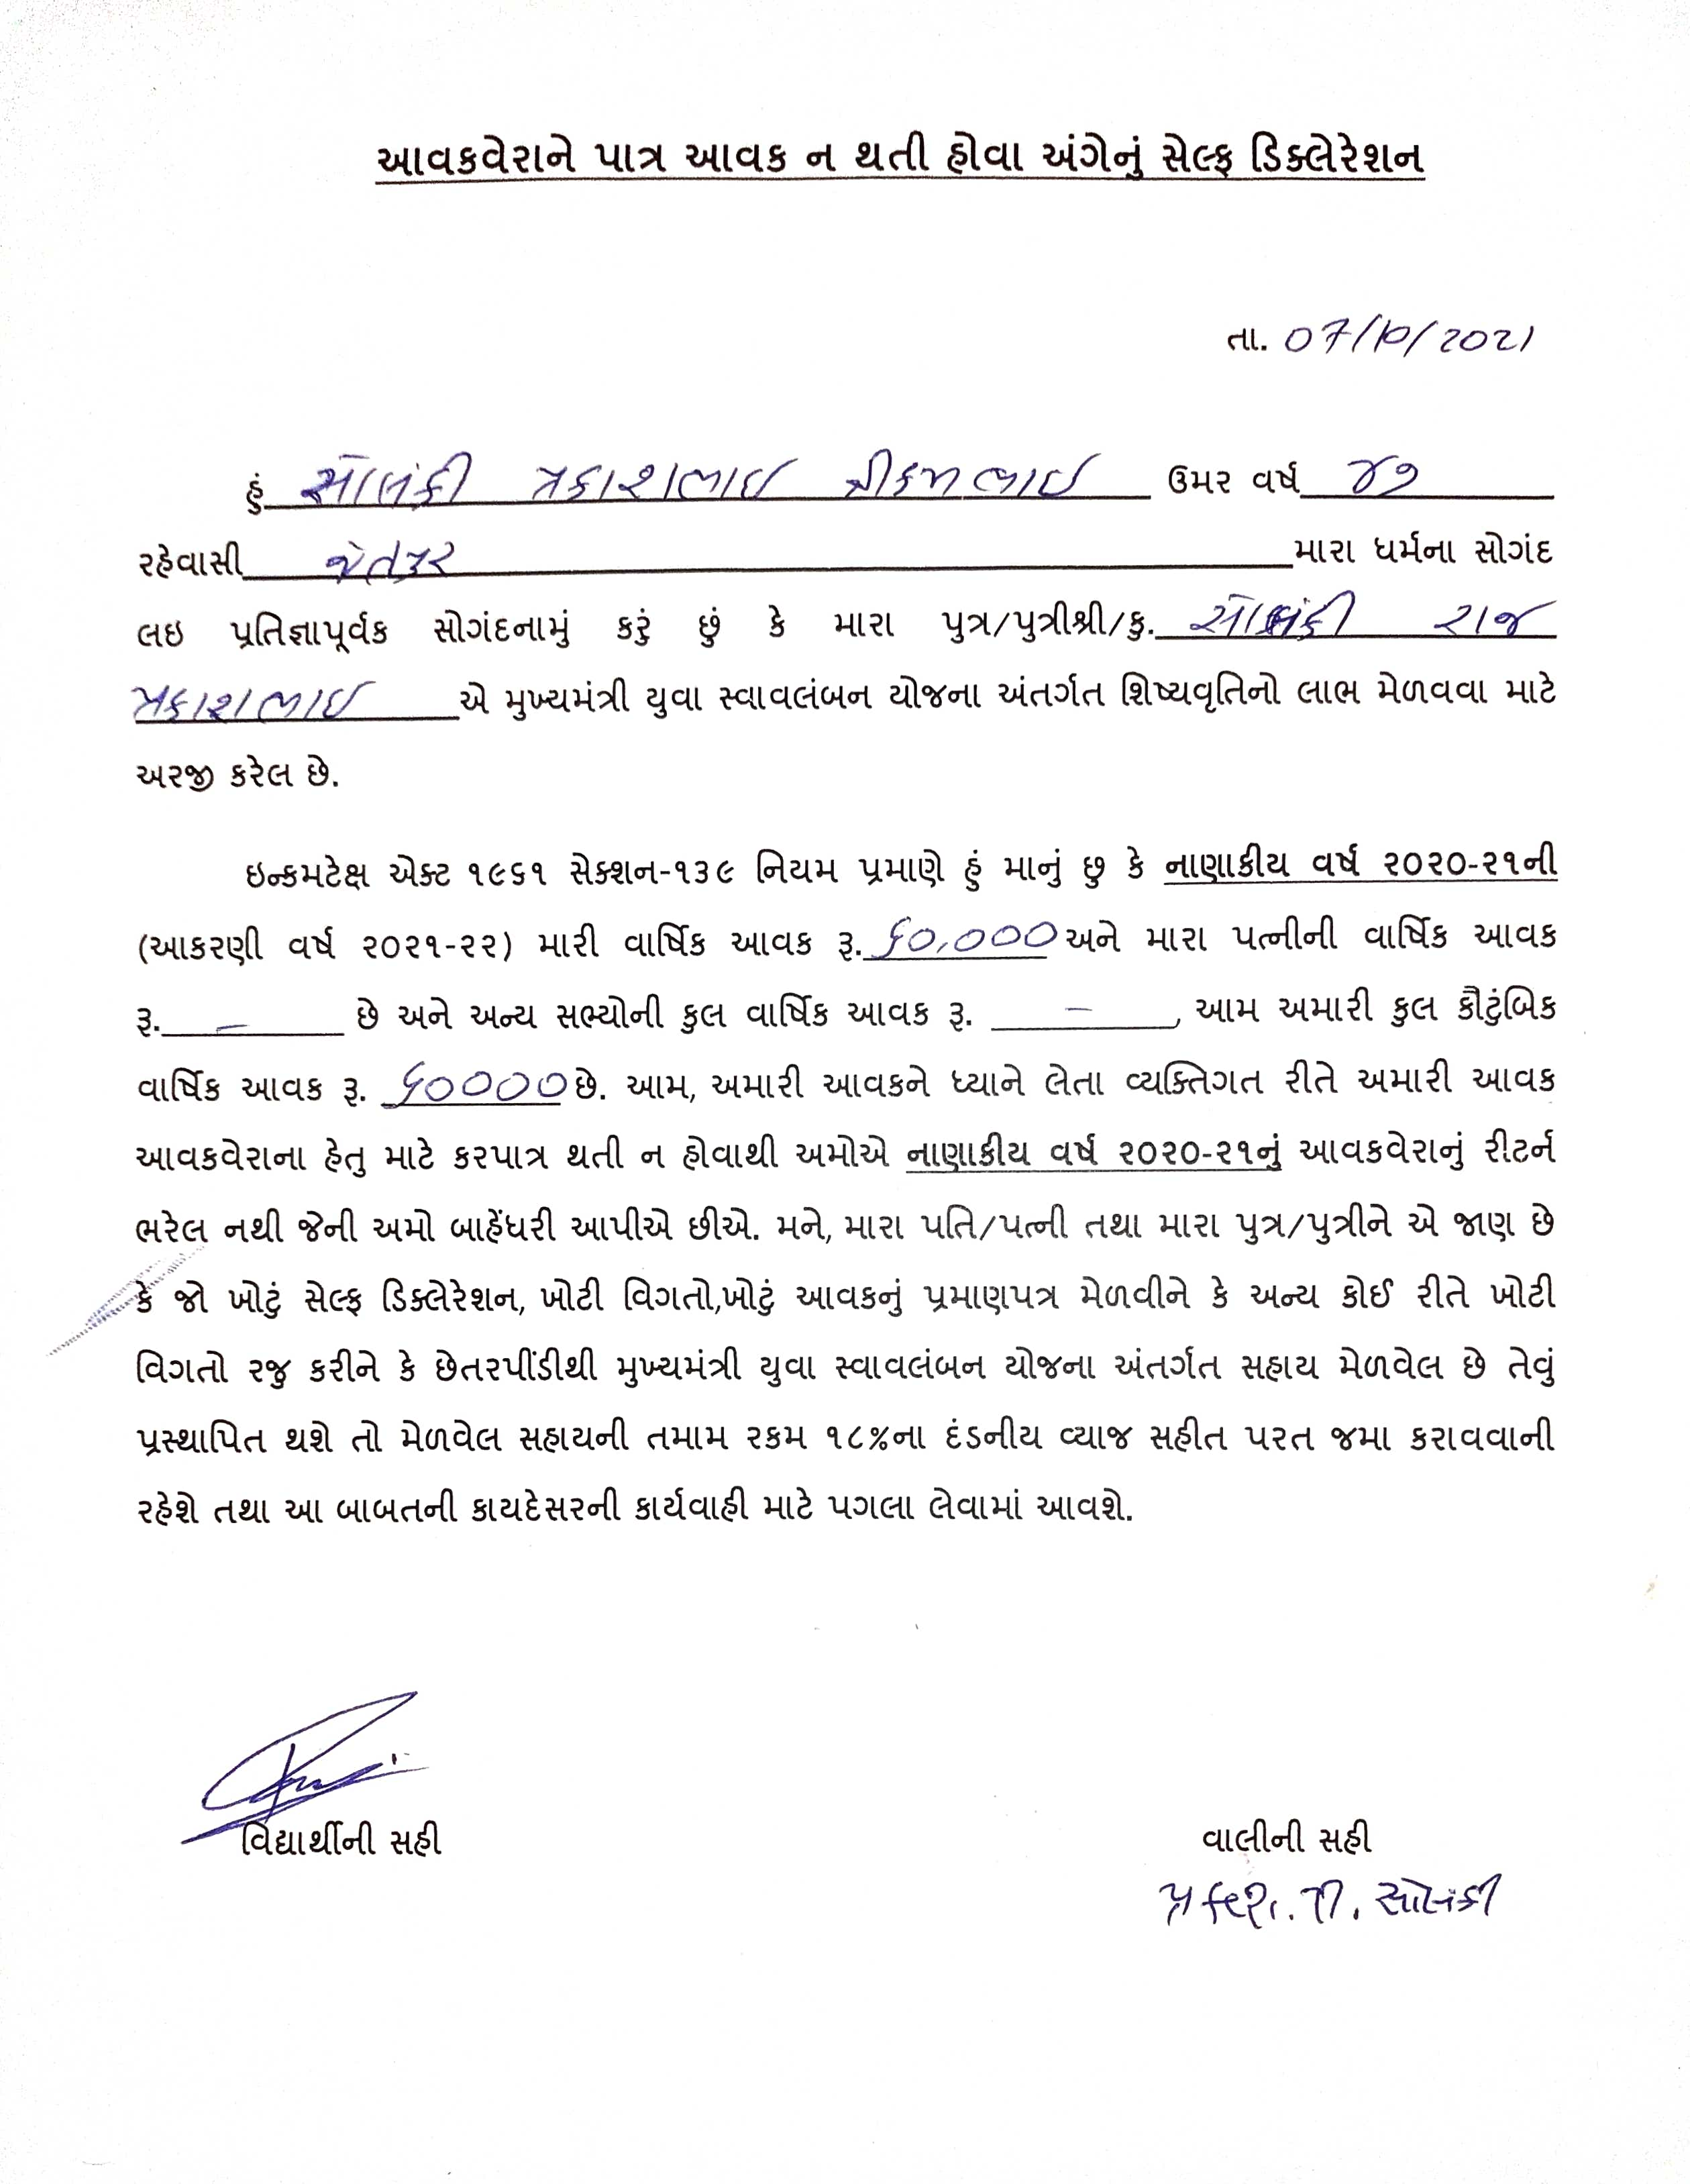 આવકવેરાને પાત્ર આવક ન થતી હોવા અંગેનું સેલ્ફ ડિક્લેરેશન
તા. 07/10/2021
હું સોલંકી પ્રકાશભાઇ ત્રીકમભાઇ ઉમર વર્ષ ૪૭
રહેવાસી જેતપુર મારા ધર્મના સોગંદ
લઇ પ્રતિજ્ઞાપૂર્વક સોગંદનામું કરું છું કે મારા પુત્ર/પુત્રીશ્રી/કુ. સોલંકી રાજ
પ્રકાશભાઇ એ મુખ્યમંત્રી યુવા સ્વાવલંબન યોજના અંતર્ગત શિષ્યવૃતિનો લાભ મેળવવા માટે
અરજી કરેલ છે.
ઇન્કમટેક્ષ એક્ટ ૧૯૬૧ સેક્શન-૧૩૯ નિયમ પ્રમાણે હું માનું છુ કે નાણાકીય વર્ષ ૨૦૨૦-૨૧ની
(આકરણી વર્ષ ૨૦૨૧-૨૨) મારી વાર્ષિક આવક રૂ. ૬૦,૦૦૦ અને મારા પત્નીની વાર્ષિક આવક
રૂ. – છે અને અન્ય સભ્યોની કુલ વાર્ષિક આવક રૂ. – , આમ અમારી કુલ કૌટુંબિક
વાર્ષિક આવક રૂ. ૬૦૦૦૦ છે. આમ, અમારી આવકને ધ્યાને લેતા વ્યક્તિગત રીતે અમારી આવક
આવકવેરાના હેતુ માટે કરપાત્ર થતી ન હોવાથી અમોએ નાણાકીય વર્ષ ૨૦૨૦-૨૧નું આવકવેરાનું રીટર્ન
ભરેલ નથી જેની અમો બાહેંધરી આપીએ છીએ. મને, મારા પતિ/પત્ની તથા મારા પુત્ર/પુત્રીને એ જાણ છે
કે જો ખોટું સેલ્ફ ડિક્લેરેશન, ખોટી વિગતો,ખોટું આવકનું પ્રમાણપત્ર મેળવીને કે અન્ય કોઈ રીતે ખોટી
વિગતો રજુ કરીને કે છેતરપીંડીથી મુખ્યમંત્રી યુવા સ્વાવલંબન યોજના અંતર્ગત સહાય મેળવેલ છે તેવું
પ્રસ્થાપિત થશે તો મેળવેલ સહાયની તમામ રકમ ૧૮%ના દંડનીય વ્યાજ સહીત પરત જમા કરાવવાની
રહેશે તથા આ બાબતની કાયદેસરની કાર્યવાહી માટે પગલા લેવામાં આવશે.
વિદ્યાર્થીની સહી
વાલીની સહી
પ્રકાશ. ત્રી. સોલંકી